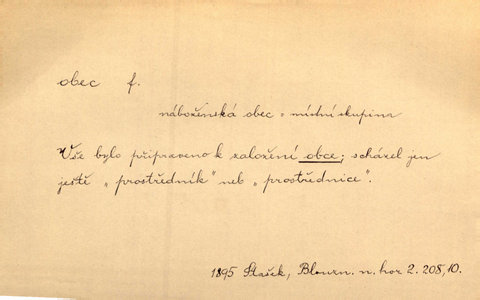 obec f.
náboženská obec = místní skupina
Vše bylo připraveno k založení obce; scházel jen
ještě „prostředník" neb „prostřednice".
1895 Stašek, Blouzn. n. hor 2. 208,10.